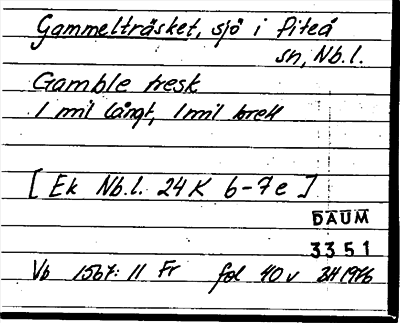 Gammelträsket, sjö i Piteå
sn, Nb.l.
Gamble tresk
1 mil långt, 1 mil brett
[ Ek Nb.l. 24K 6-7e ]
DAUM
3351
Vb 1567: 11 Fr fol 40v